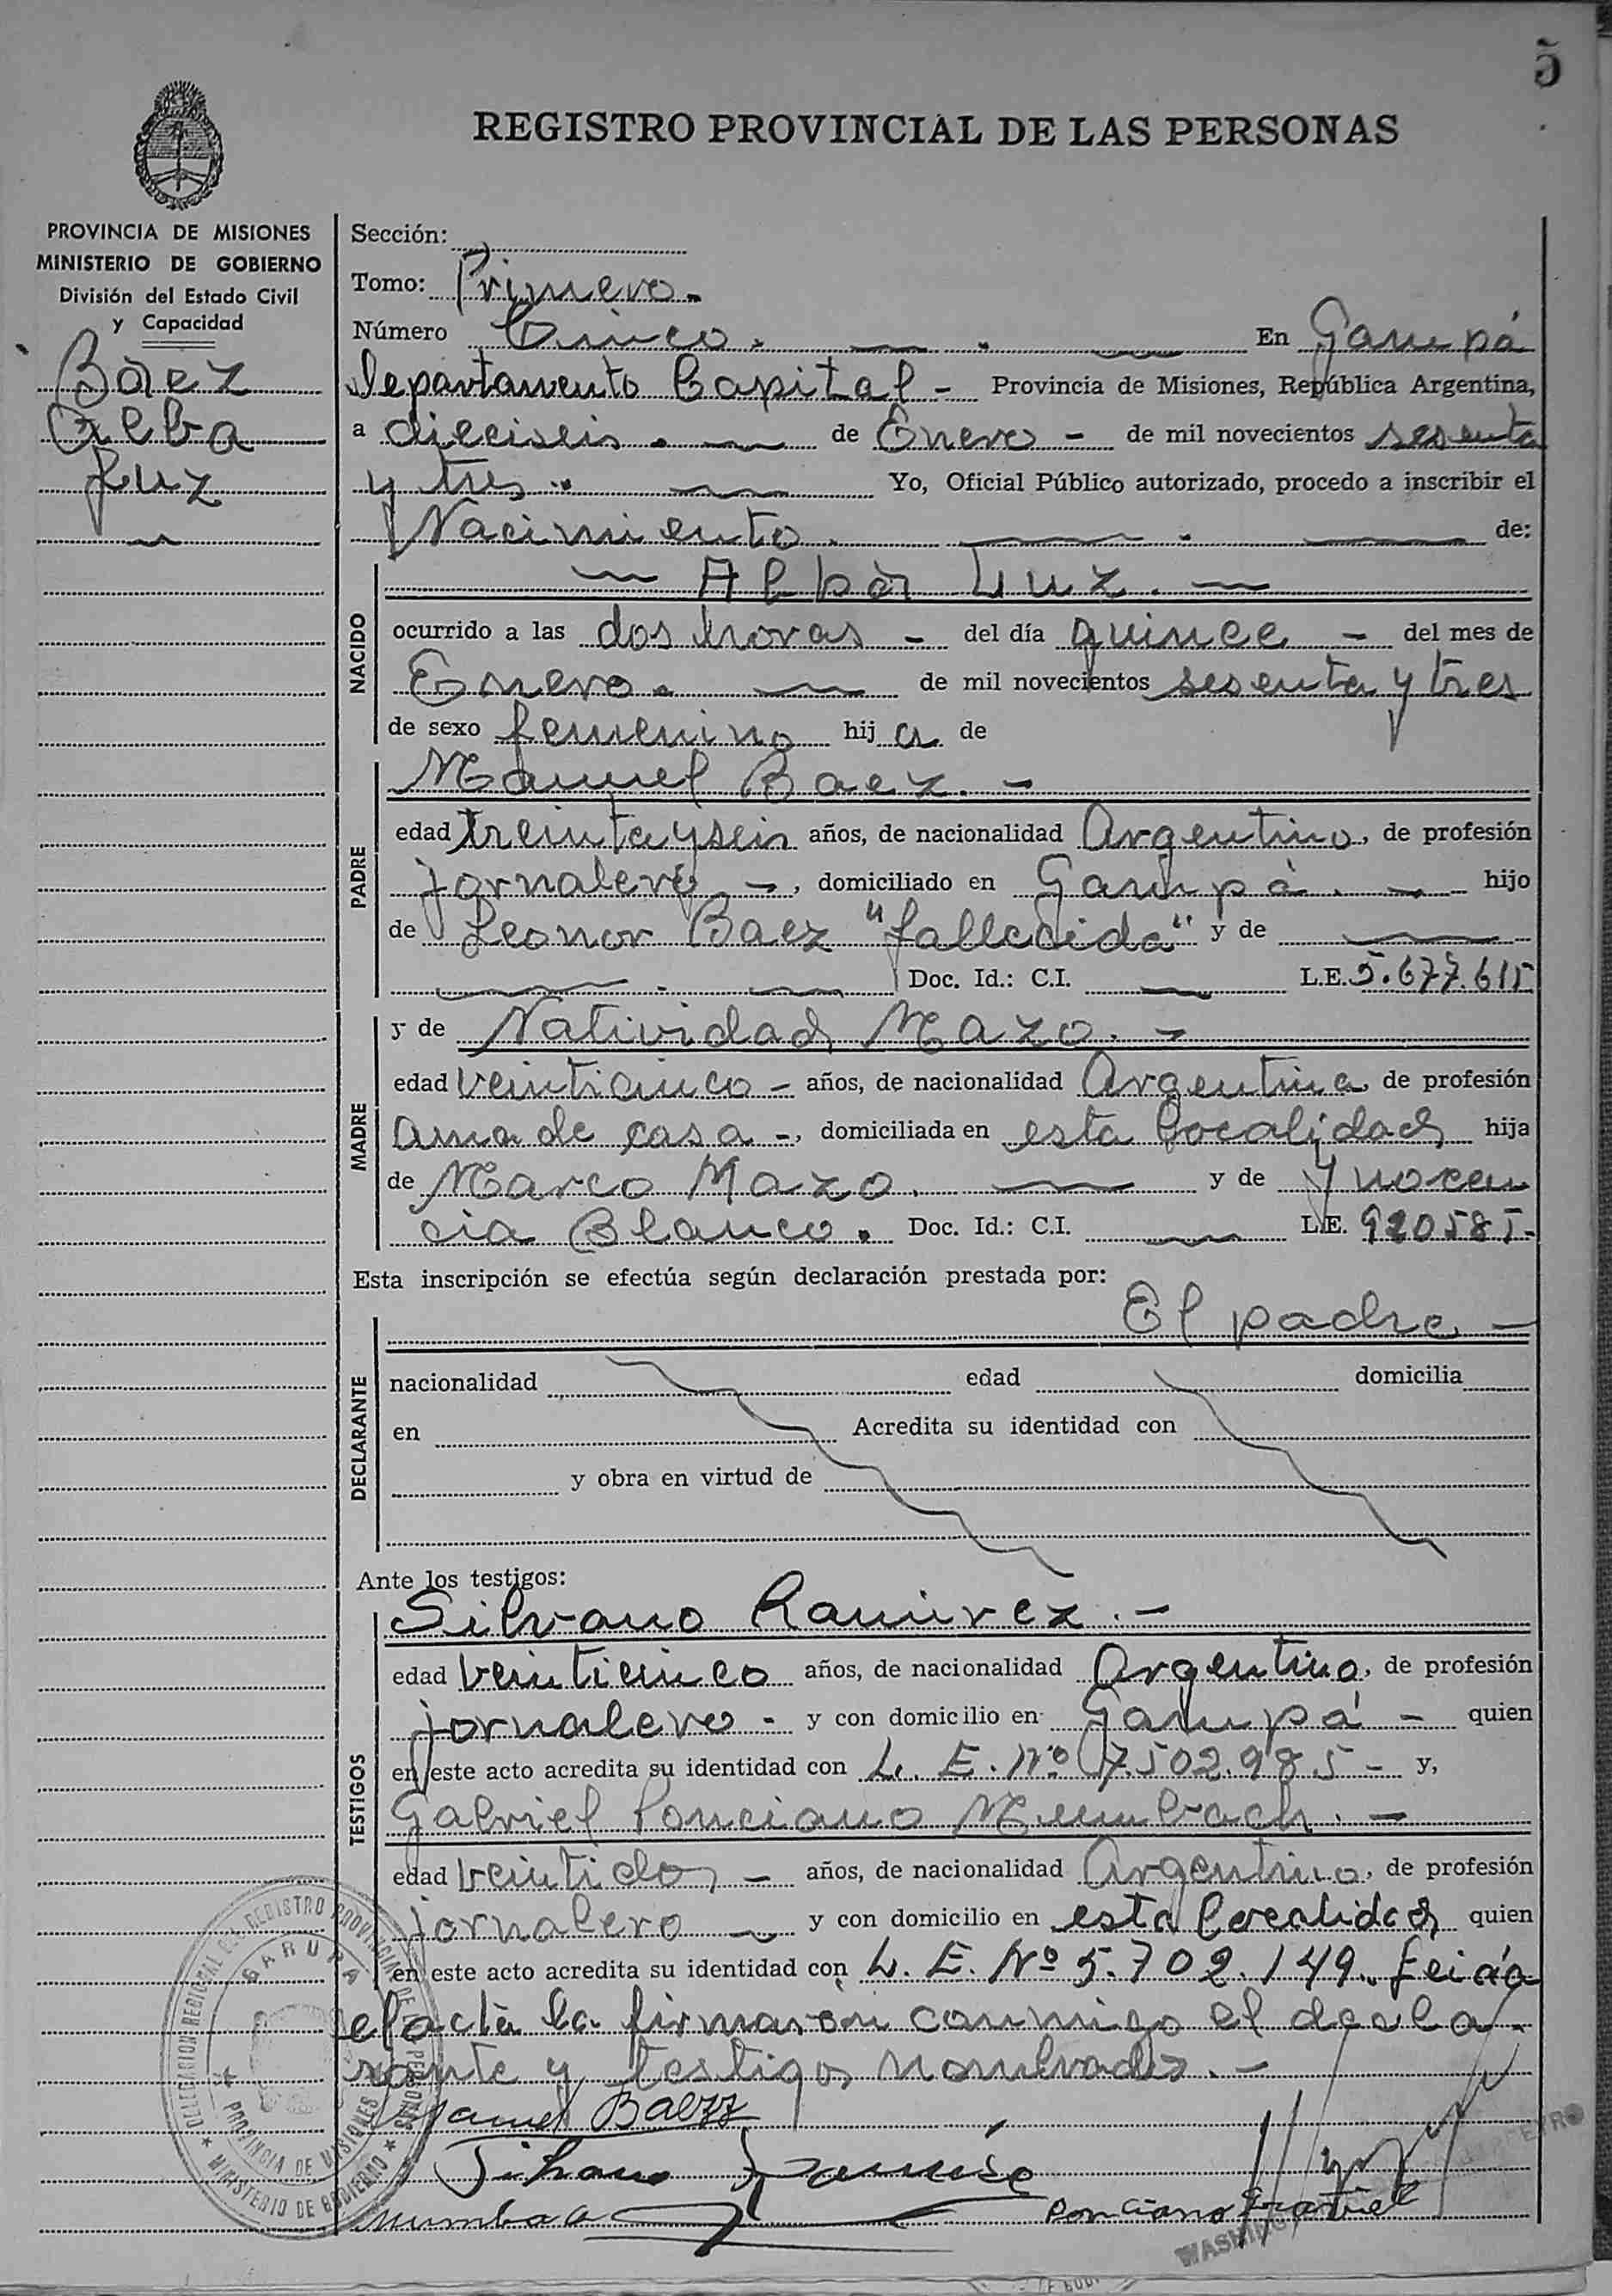 5
REGISTRO PROVINCIAL DE LAS PERSONAS
PROVINCIA DE MISIONES
MINISTERIO DE GOBIERNO
División del Estado Civil
y Capacidad
Baez
Alba
Luz
Sección:
Tomo: Primero.-
Número Cinco. En Garupá
departamento Capital - Provincia de Misiones, República Argentina,
a dieciseis. de Enero - de mil novecientos sesenta
y tres.. Yo, Oficial Público autorizado, procedo a inscribir el
Nacimiento. de:
NACIDO
Alba Luz.
ocurrido a las dos horas - del día quince - del mes de
Enero. de mil novecientos sesenta y tres
de sexo femenino hija de
PADRE
Manuel Baez. -
edad treinta y seis años, de nacionalidad Argentino, de profesión
jornalero -, domiciliado en Garupá. hijo
de Leonor Baez "fallecida" y de
Doc. Id.: C.I. L.E. 5.677.615
MADRE
y de Natividad Mazo. -
edad veinticinco - años, de nacionalidad Argentina, de profesión
ama de casa -, domiciliada en esta localidad hija
de Marco Mazo. y de Ynocen
cia Blanco. Doc. Id.: C.I. L.E. 920585-
Esta inscripción se efectúa según declaración prestada por:
DECLARANTE
El padre -
nacionalidad edad domicilia
en Acredita su identidad con
y obra en virtud de
Ante los testigos:
TESTIGOS
Silvano Ramirez. -
edad veinticinco años, de nacionalidad Argentino, de profesión
jornalero - y con domicilio en Garupá - quien
en este acto acredita su identidad con L. E. Nº 7.502.985 - y,
Gabriel Ponciano Mumbach. -
edad veintidos - años, de nacionalidad Argentino, de profesión
jornalero y con domicilio en esta localidad quien
en este acto acredita su identidad con L. E. Nº 5.702.149. Leida
el acta la firmaron conmigo el decla-
rante y testigos nombrados. -
Manuel Baezz
Silvano Ramirez
Ponciano Gabriel
DELEGACION REGIONAL DEL REGISTRO PROVINCIAL DE LAS PERSONAS
GARUPA
PROVINCIA DE MISIONES
MINISTERIO DE GOBIERNO